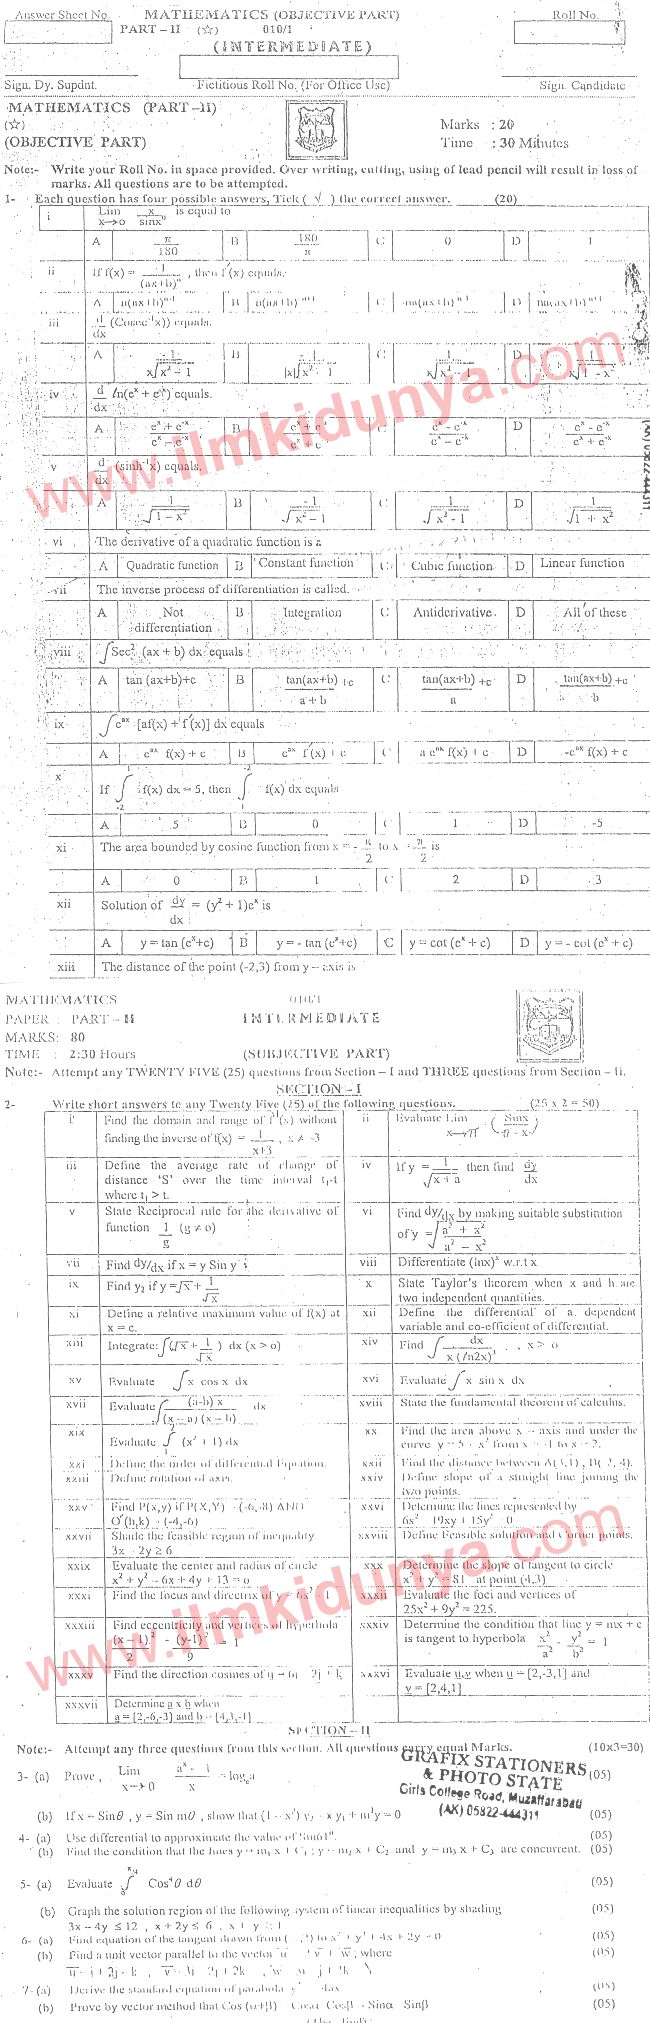 Answer Sheet No.
MATHEMATICS (OBJECTIVE PART)
Roll No.
PART – II (☆) 010/1
(INTERMEDIATE)
Sign. Dy. Supdnt.
Fictitious Roll No. (For Office Use)
Sign. Candidate
MATHEMATICS (PART –II)
(☆)
(OBJECTIVE PART)
Marks : 20
Time : 30 Minutes
Note:- Write your Roll No. in space provided. Over writing, cutting, using of lead pencil will result in loss of
marks. All questions are to be attempted.
1- Each question has four possible answers, Tick ( √ ) the correct answer. (20)
i Lim x→o x/sinx° is equal to
A π/180 B 180/π C 0 D 1
ii If f(x) = 1/(ax+b)ⁿ , then f'(x) equals.
iii d/dx (Cosec⁻¹x)) equals.
iv d/dx ln(eˣ + e⁻ˣ) equals.
v d/dx (sinh⁻¹x) equals,
A 1/√(1 – x²) B -1/√(x² – 1) C 1/√(x² - 1) D 1/√(1 + x²)
vi The derivative of a quadratic function is a
A Quadratic function B Constant function C Cubic function D Linear function
vii The inverse process of differentiation is called.
A Not differentiation B Integration C Antiderivative D All of these
viii ∫Sec² (ax + b) dx equals
A tan (ax+b)+c B tan(ax+b)/a + b +c C tan(ax+b)/a +c D tan(ax+b)/a b +c
ix ∫eᵃˣ [af(x) + f'(x)] dx equals
A eᵃˣ f(x) + c B eᵃˣ f'(x) + c C a eᵃˣ f(x) + c D -eᵃˣ f(x) + c
x If ∫ f(x) dx = 5, then ∫ f(x) dx equals
A 5 B 0 C 1 D -5
xi The area bounded by cosine function from x = - π/2 to x = π/2 is
A 0 B 1 C 2 D 3
xii Solution of dy/dx = (y² + 1)eˣ is
A y = tan (eˣ+c) B y = - tan (eˣ+c) C y = cot (eˣ + c) D y = - cot (eˣ + c)
xiii The distance of the point (-2,3) from y – axis is
MATHEMATICS 010/1
PAPER : PART – II INTERMEDIATE
MARKS: 80
TIME : 2:30 Hours (SUBJECTIVE PART)
Note:- Attempt any TWENTY FIVE (25) questions from Section – I and THREE questions from Section – II.
SECTION – I
2- Write short answers to any Twenty Five (25) of the following questions. (25 x 2 = 50)
i Find the domain and range of f⁻¹(x) without
finding the inverse of f(x) = 1/x+3 , x ≠ -3
ii Evaluate Lim x→π (Sinx/π - x)
iii Define the average rate of change of
distance 'S' over the time interval t₁-t
where t₁ > t.
iv If y = 1/√(x + a) then find dy/dx
v State Reciprocal rule for the derivative of
function 1/g (g ≠ o)
vi Find dy/dx by making suitable substitution
of y = √(a² + x²/a² – x²)
vii Find dy/dx if x = y Sin y
viii Differentiate (lnx)ˣ w.r.t x
ix Find y₂ if y = √x + 1/√x
x State Taylor's theorem when x and h are
two independent quantities.
xi Define a relative maximum value of f(x) at
x = c.
xii Define the differential of a dependent
variable and co-efficient of differential.
xiii Integrate: ∫(√x + 1/√x) dx (x > o)
xiv Find ∫ dx/x (ln2x)³ , x > o
xv Evaluate ∫ x cos x dx
xvi Evaluate ∫ x sin x dx
xvii Evaluate ∫ (a-b) x/(x – a) (x – b) dx
xviii State the fundamental theorem of calculus.
xix Evaluate ∫ (x² + 1) dx
xx Find the area above x – axis and under the
curve y = 5 - x² from x = -1 to x = 2.
xxi Define the order of differential Equation.
xxii Find the distance between A(3,1) , B(-2,-4).
xxiii Define rotation of axis.
xxiv Define slope of a straight line joining the
two points.
xxv Find P(x,y) if P(X,Y) = (-6,-8) AND
O'(h,k) = (-4,-6)
xxvi Determine the lines represented by
6x² - 19xy + 15y² = 0
xxvii Shade the feasible region of inequality
3x – 2y ≥ 6
xxviii Define Feasible solution and Corner points.
xxix Evaluate the center and radius of circle
x² + y² – 6x + 4y + 13 = o
xxx Determine the slope of tangent to circle
x² + y² = 81 at point (4,3)
xxxi Find the focus and directrix of y = 6x² - 1
xxxii Evaluate the foci and vertices of
25x² + 9y² = 225.
xxxiii Find eccentricity and vertices of hyperbola
(x – 1)²/2 - (y-1)²/9 = 1
xxxiv Determine the condition that line y = mx + c
is tangent to hyperbola x²/a² - y²/b² = 1
xxxv Find the direction cosines of
xxxvi Evaluate u.v when u = [2,-3,1] and
v = [2,4,1]
xxxvii Determine a x b when
a = [2,-6,-3] and b = [4,3,-1]
SECTION – II
Note:- Attempt any three questions from this section. All questions carry equal Marks. (10x3=30)
3- (a) Prove, Lim x→0 aˣ - 1/x = logₑa (05)
(b) If x = Sinθ , y = Sin mθ , show that (1 – x²) y₂ – x y₁ + m²y = 0 (05)
4- (a) Use differential to approximate the value of Sin61°. (05)
(b) Find the condition that the lines y = m₁ x + C₁ ; y = m₂ x + C₂ and y = m₃ x + C₃ are concurrent. (05)
5- (a) Evaluate ∫ Cos⁴θ dθ (05)
(b) Graph the solution region of the following system of linear inequalities by shading (05)
3x – 4y ≤ 12 , x + 2y ≤ 6 , x + y ≥ 1
6- (a) Find equation of the tangent drawn from to x² + y² + 4x + 2y = 0 (05)
(b) Find a unit vector parallel to the vector where (05)
7- (a) Derive the standard equation of parabola (05)
(b) Prove by vector method that Cos (α+β) = Cosα Cosβ – Sinα Sinβ (05)
GRAFIX STATIONERS
& PHOTO STATE
Girls College Road, Muzaffarabad
(AK) 05822-444311
www.ilmkidunya.com
www.ilmkidunya.com